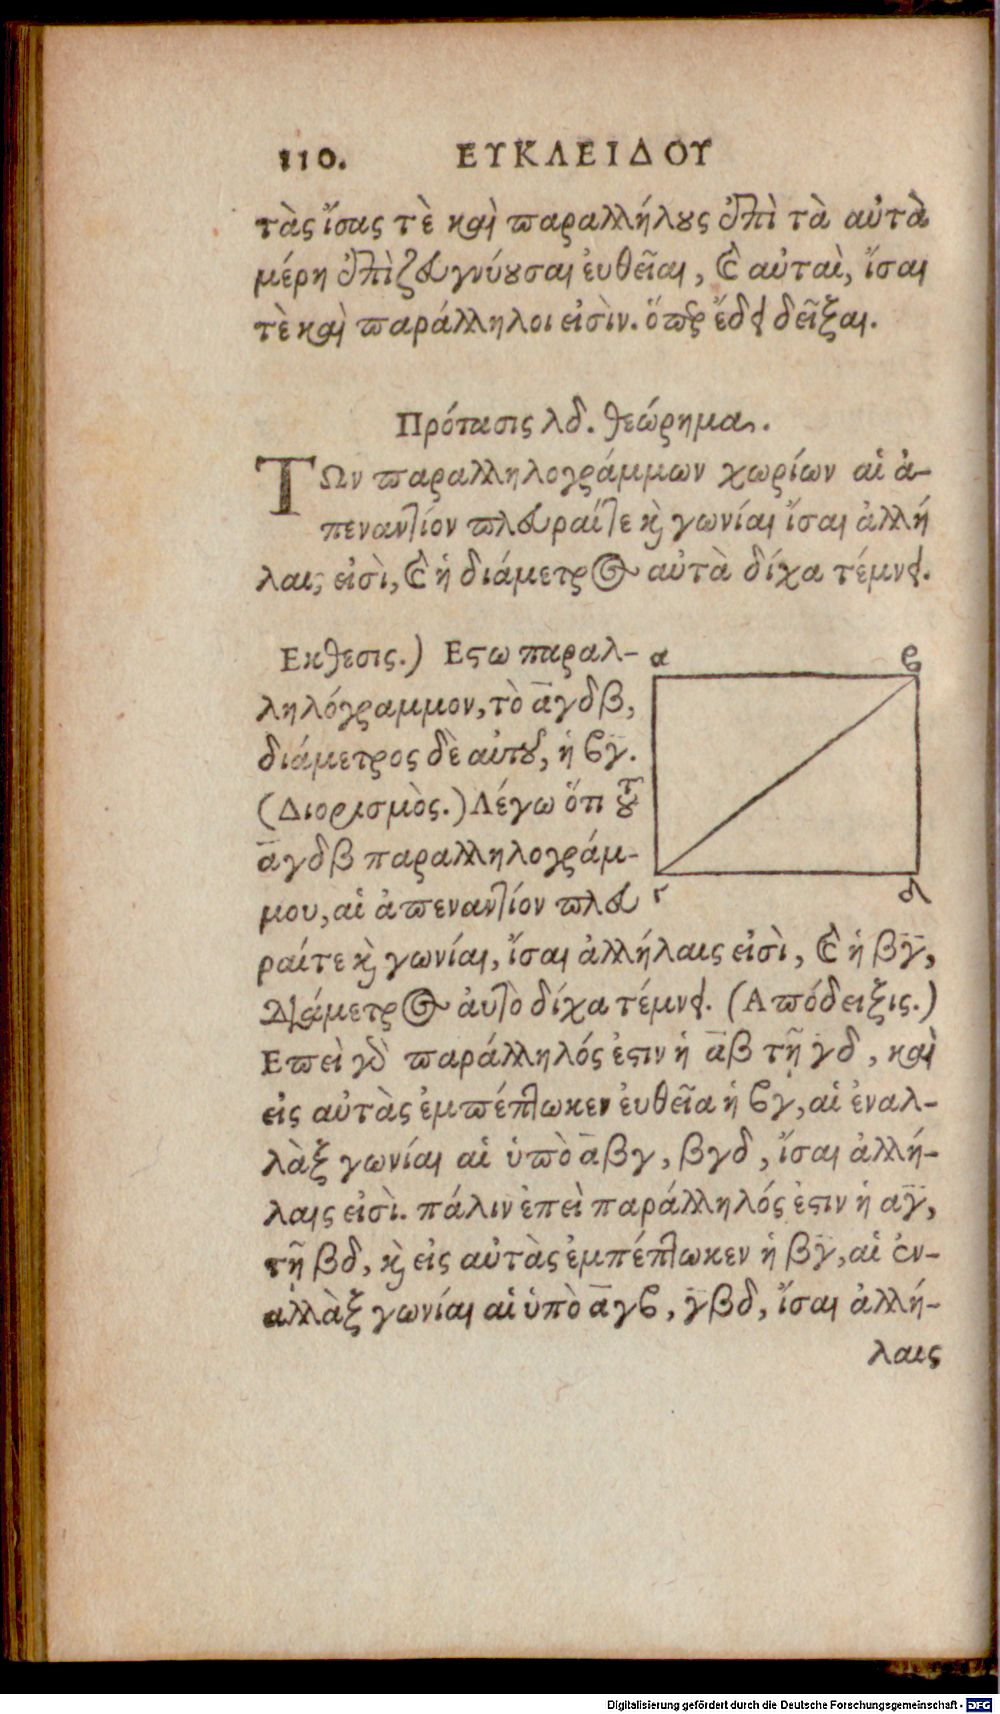 110. ΕΥΚΛΕΙΔΟΥ
τὰς ἴσας τὲ καὶ παραλλήλους ἐπὶ τὰ αὐτὰ
μέρη ἐπιζευγνύουσαι ἐυθεῖαι, καὶ αὐταὶ, ἴσαι
τὲ καὶ παράλληλοι εἰσὶν. ὅπερ ἔδει δεῖξαι.
Πρότασις λδ. θεώρημα.
ΤΩν παραλληλογράμμων χωρίων αἱ ἀ-
πεναντίον πλευραί τε καὶ γωνίαι ἴσαι ἀλλή
λαις εἰσὶ, καὶ ἡ διάμετρος αὐτὰ δίχα τέμνει.
Εκθεσις.) Εστω παραλ-
ληλόγραμμον, τὸ αγδβ,
διάμετρος δὲ αὐτοῦ, ἡ βγ.
(Διορισμὸς.) Λέγω ὅτι τοῦ
αγδβ παραλληλογράμ-
μου, αἱ ἀπεναντίον πλευ
ραίτε καὶ γωνίαι, ἴσαι ἀλλήλαις εἰσὶ, καὶ ἡ βγ,
Διάμετρος ἀυτὸ δίχα τέμνει. (Απόδειξις.)
Επεὶ γὰρ παράλληλός ἐστιν ἡ αβ τῇ γδ, καὶ
εἰς αὐτὰς ἐμπέπτωκεν ἐυθεῖα ἡ βγ, αἱ ἐναλ-
λὰξ γωνίαι αἱ ὑπὸ αβγ, βγδ, ἴσαι ἀλλή-
λαις εἰσὶ. πάλιν ἐπεὶ παράλληλός ἐστιν ἡ αγ,
τῇ βδ, καὶ εἰς αὐτὰς ἐμπέπτωκεν ἡ βγ, αἱ ἐν-
αλλὰξ γωνίαι αἱ ὑπὸ αγβ, γβδ, ἴσαι ἀλλή-
λαις
α β
γ δ
Digitalisierung gefördert durch die Deutsche Forschungsgemeinschaft - DFG